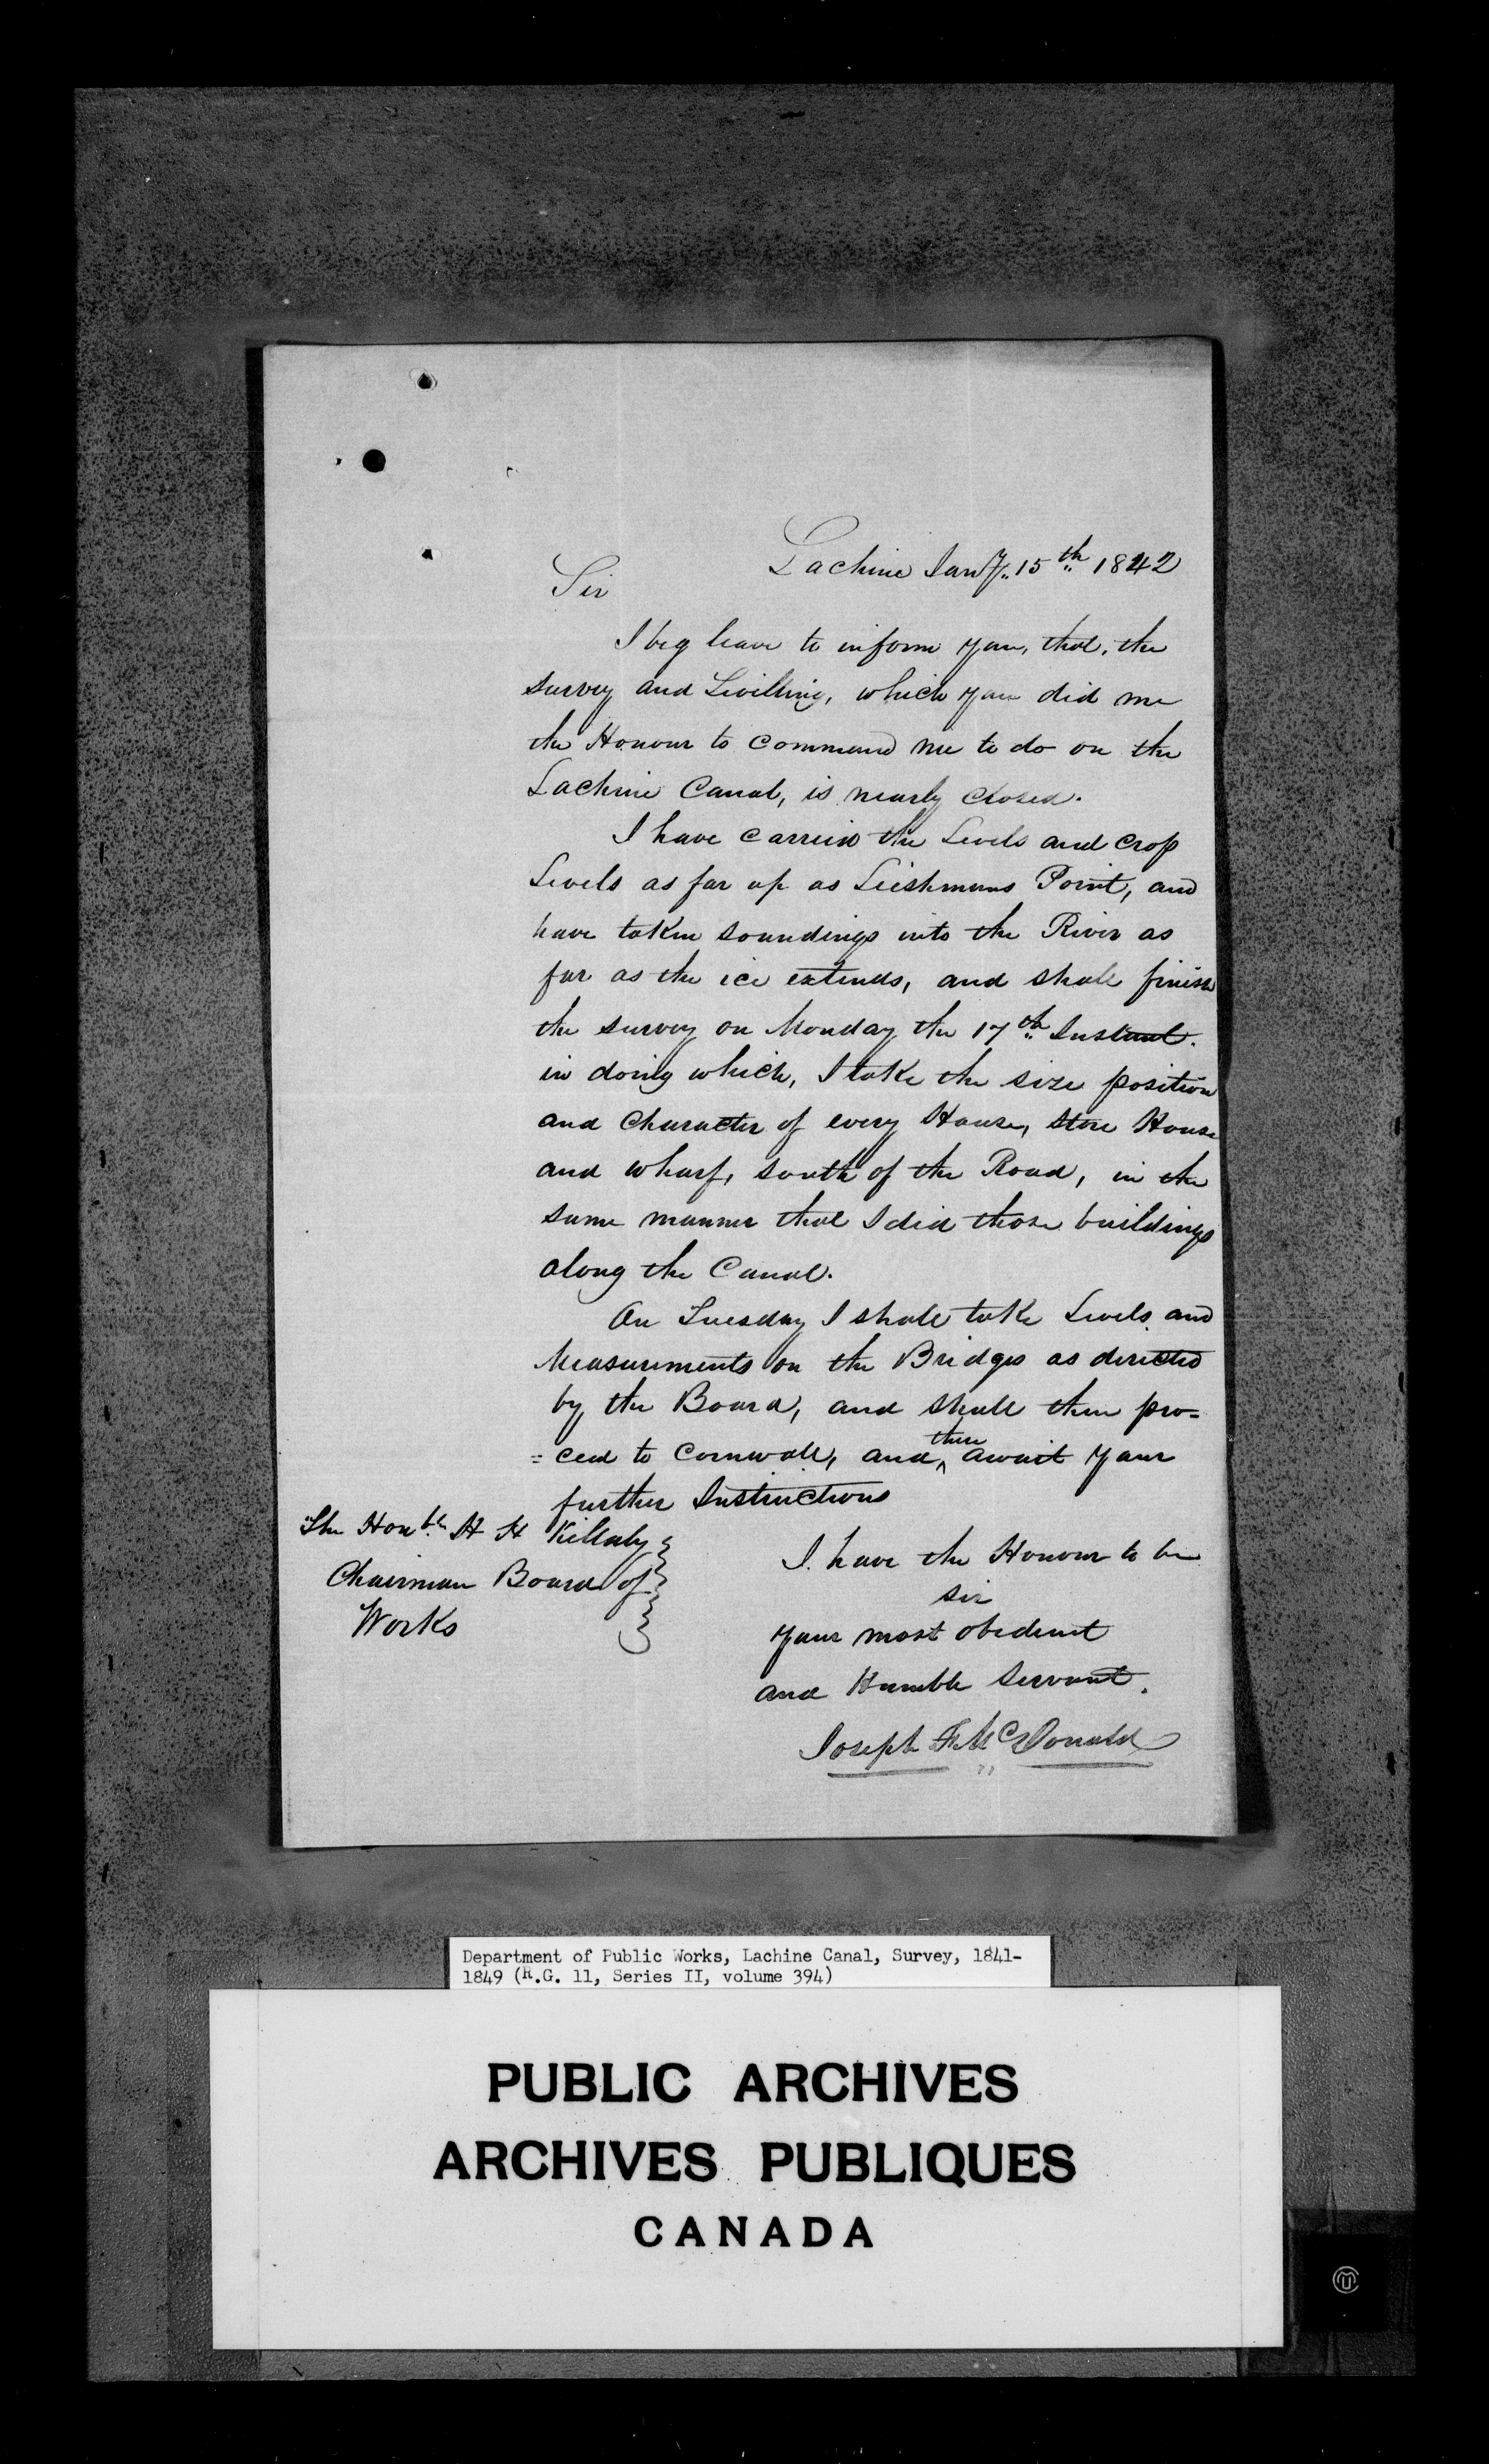 Lachine Jany. 15th 1842
Sir
I beg leave to inform you, that, the
survey and Levilling, which you did me
the Honour to Command me to do on the
Lachine Canal, is nearly closed.
I have carried the Levels and Crop
Levels as far up as Leishmans Point, and
have taken soundings into the River as
far as the ice extends, and shall finish
the survey on Monday the 17th Instant.
in doing which, I take the size position
and Character of every House, Store House
and wharf, south of the Road, in the
same manner that I did those buildings
along the Canal.
On Tuesday I shall take Levels and
Measurements on the Bridges as directed
by the Board, and shall then pro-
=ceed to Cornwall, and, there await your
further Instructions
The Honble H H Killaly
Chairman Board of
Works
I have the Honour to be
sir
your most obedient
and Humble Servant.
Joseph F. McDonald
Department of Public Works, Lachine Canal, Survey, 1841-
1849 (R.G. 11, Series II, volume 394)
PUBLIC ARCHIVES
ARCHIVES PUBLIQUES
CANADA